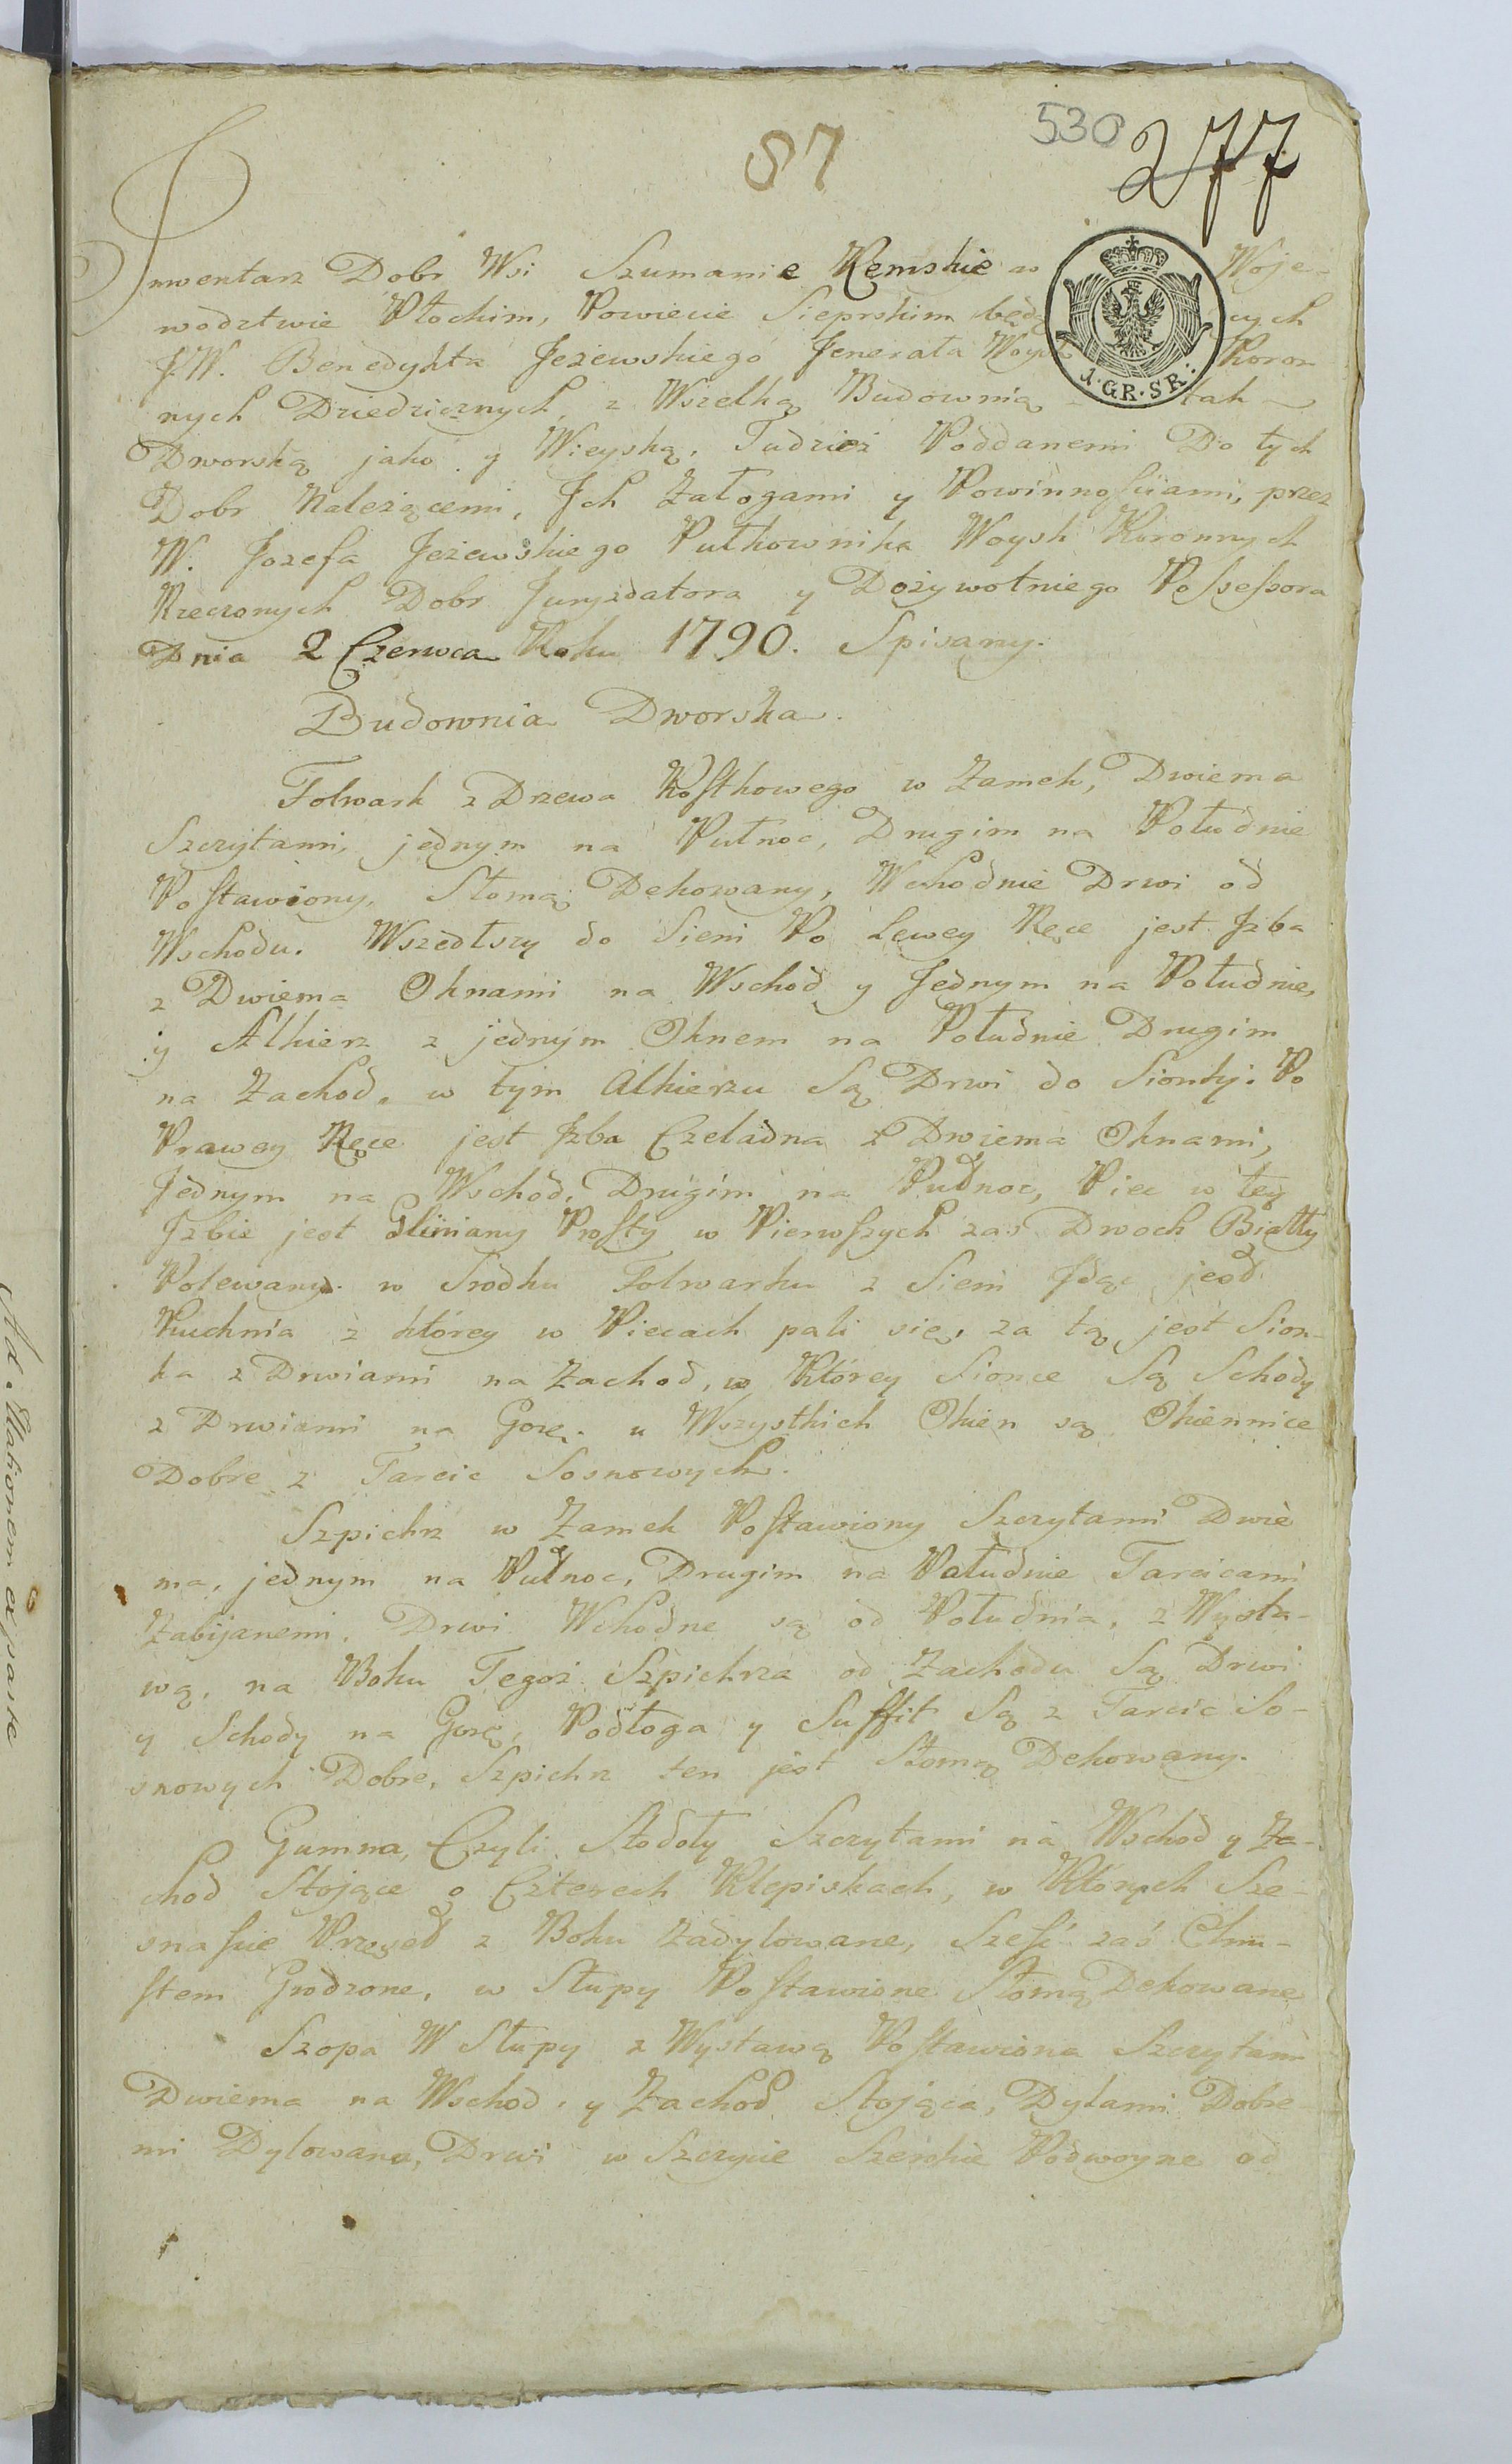 87
530
277
1. GR. SR:
Inwentarz Dobr Wsi Szumanie Remskie w Woje-
wodztwie Płockim, Powiecie Sieprskim będą cych
J.W. Benedykta Jeżewskiego Jenerała Woysk Koron
nych Dziedzicznych, z Wszelką Budownią tak
Dworską jako y Wieyską, Tudzież Poddanemi Do tych
Dobr Należącemi, Jch Załogami y Powinnościami, przez
W. Jozefa Jeżewskiego Pułkownika Woysk Koronnych
Rzeczonych Dobr Juryzdatora y Dożywotniego Possessora
Dnia 2 Czerwca Roku 1790. Spisany.
Budownia Dworska.
Folwark z Drzewa Kostkowego w Zamek, Dwiema
Szczytami, jednym na Pułnoc, Drugim na Południe
Postawiony, Słomą Dekowany, Wchodnie Drwi od
Wschodu. Wszedłszy do Sieni Po Lewey Ręce jest Jzba
z Dwiema Oknami na Wschod y Jednym na Południe,
y Alkierz z jednym Oknem na Południe Drugim
na Zachod, w tym Alkierzu Są Drwi do Sionky. Po
Prawey Ręce jest Jzba Czeladna z Dwiema Oknami,
Jednym na Wschod, Drugim na Pułnoc, Piec w tey
Jzbie jest Gliniany Prosty w Pierwszych zaś Dwoch Biały
Polewany. w Srodku Folwarku z Sieni Jdąc jest
Kuchnia z którey w Piecach pali się, za tą jest Sion-
ka z Drwiami na Zachod, w Którey Sionce Są Schody
z Drwiami na Gorę. u Wszystkich Okien są Okiennice
Dobre z Tarcic Sosnowych.
Szpichrz w Zamek Postawiony Szczytami Dwie
ma, jednym na Pułnoc, Drugim na Południe Tarcicami
Zabijanemi. Drwi Wchodne są od Południa, z Wysta-
wą, na Boku Tegoż Szpichrza od Zachodu Są Drwi
y Schody na Gorę, Podłoga y Suffit Są z Tarcic So-
snowych Dobre, Szpichrz ten jest Słomą Dekowany.
Gumna, Czyli Stodoły Szczytami na Wschod y Za-
chod Stojące o Czterech Klepiskach, w Których Sze-
snascie Przęseł z Boku Zadylowane, Sześć zaś Chru-
stem Grodzone, w Słupy Postawione Słomą Dekowane
Szopa W Słupy z Wystawą Postawiona Szczytami
Dwiema na Wschod, y Zachod Stojąca, Dylami Dobre-
mi Dylowana, Drwi w Szczycie Szerokie Podwoyne od